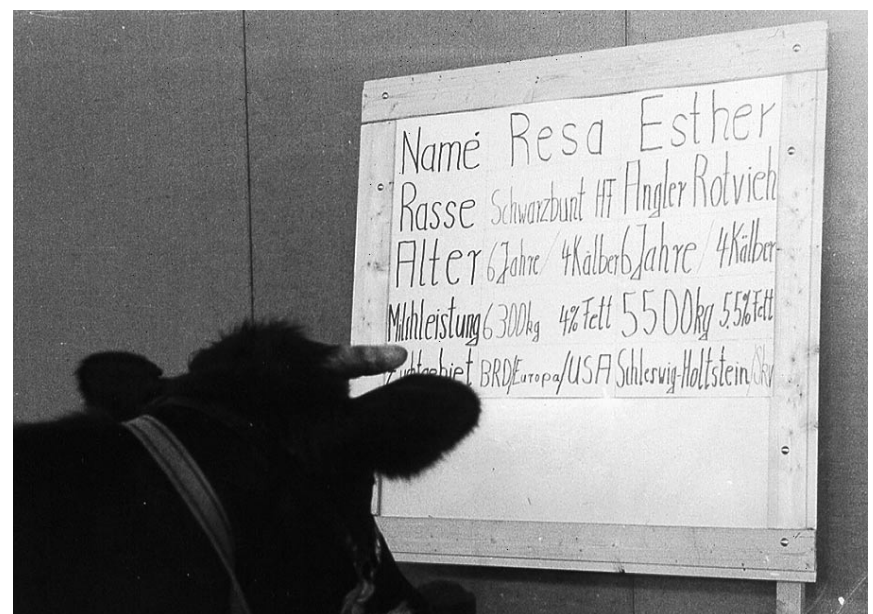 Namé Resa Esther
Rasse Schwarzbunt HF Angler Rotvieh
Alter 6 Jahre / 4 Kälber 6 Jahre / 4 Kälber
Milchleistung 6300kg 4% Fett 5500kg 5,5% Fett
BRD/Europa/USA Schleswig-Holtstein